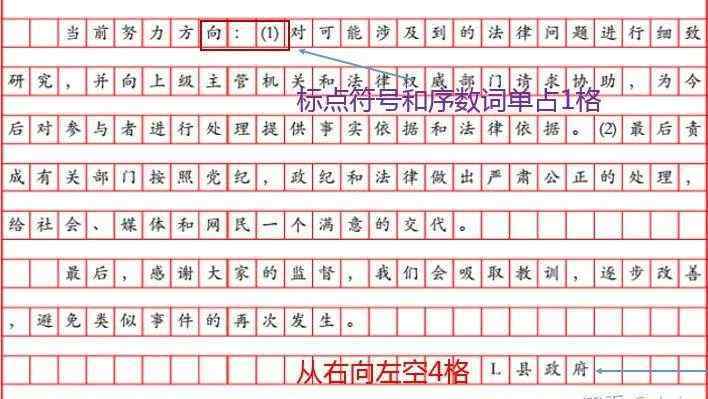 当前努力方向：(1)对可能涉及到的法律问题进行细致
标点符号和序数词单占1格
研究，并向上级主管机关和法律权威部门请求协助，为今
后对参与者进行处理提供事实依据和法律依据。(2)最后责
成有关部门按照党纪，政纪和法律做出严肃公正的处理，
给社会、媒体和网民一个满意的交代。
最后，感谢大家的监督，我们会吸取教训，逐步改善
，避免类似事件的再次发生。
从右向左空4格
L县政府